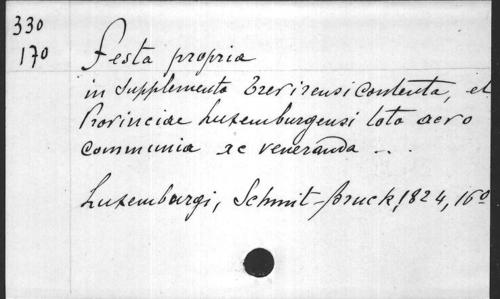 330
170
Festa propria
in Supplemento Trevirensi contenta, et
Provinciae Luxemburgensi toto aevo
communia ac veneranda ...
Luxemburgi, Schmit-Bruck, 1824, 16º